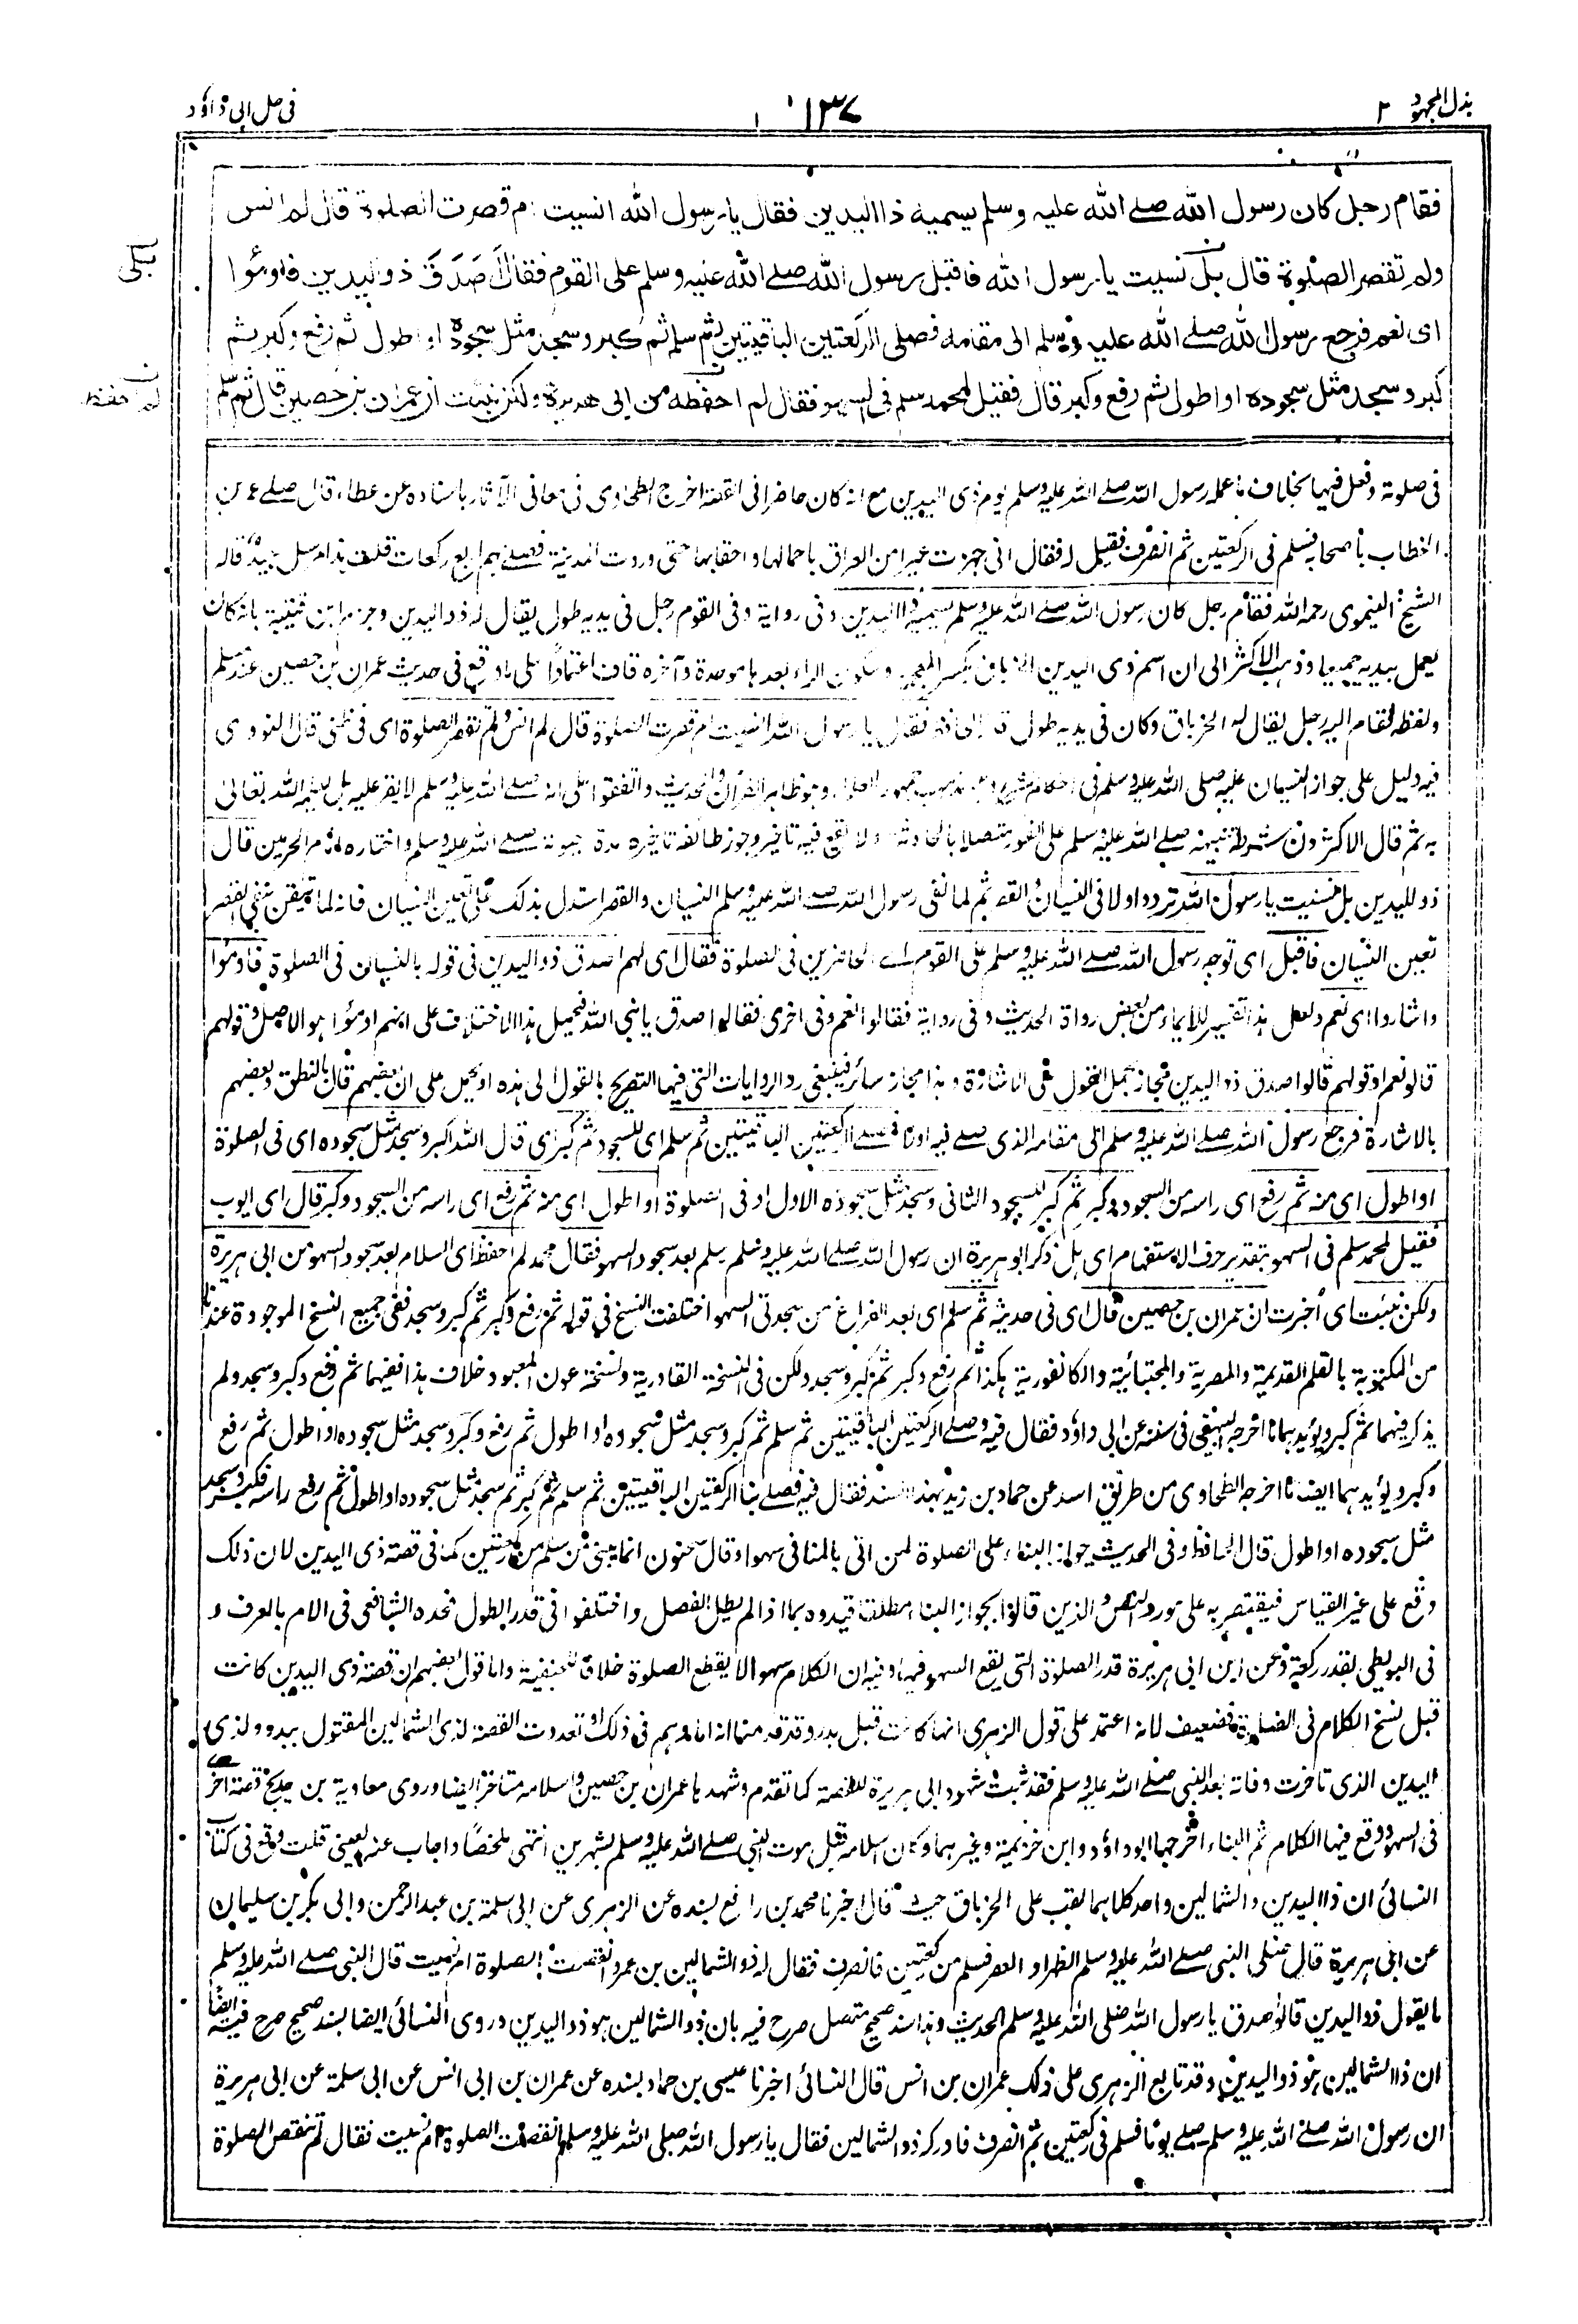 بذل المجهود ٢
١٣٧
فى حل ابى داؤد
فقام رجل كان رسول الله صلے الله عليه وسلم يسميه ذا اليدين فقال يا رسول الله انسيت ام قصرت الصلوة قال لم انس
ولم تقصر الصلوة قال بل نسيت يا رسول الله فاقبل رسول الله صلے الله عليه وسلم على القوم فقال اَصَدَقَ ذو اليدين فاومئوا
بلى
اى نعم فرجع رسول الله صلے الله عليه وسلم الى مقامه فصلى الركعتين الباقيتين ثم سلم ثم كبر وسجد مثل سجوده او اطول ثم رفع وكبر ثم
كبر وسجد مثل سجوده او اطول ثم رفع وكبر قال فقيل لمحمد سلم فى السهو فقال لم احفظه من ابى هريرة ولكن نبئت ان عمران بن حصين قال ثم سلم
لم احفظ
فى صلوته وفعل فيها بخلاف ما عمله رسول الله صلے الله عليه وسلم يوم ذى اليدين مع انه كان حاضرا فى القصة اخرج الطحاوى فى معانى الآثار باسناده عن عطاء قال صلے عمر بن
الخطاب باصحابه فسلم فى الركعتين ثم انصرف فقيل له فقال انى جهزت عيرا من العراق باحمالها واحقابها حتى وردت المدينة فصلے بهم اربع ركعات قلت هذا مرسل جيد قاله
الشيخ النيموى رحمه الله فقام رجل كان رسول الله صلے الله عليه وسلم يسميه ذا اليدين وفى رواية وفى القوم رجل فى يديه طول يقال له ذو اليدين وجزم ابن قتيبة بانه كان
يعمل بيديه جميعا وذهب الاكثر الى ان اسم ذى اليدين الخرباق بكسر المعجمة وسكون الراء بعدها موحدة وآخره قاف اعتمادًا على ما وقع فى حديث عمران بن حصين عند مسلم
ولفظه فقام اليه رجل يقال له الخرباق وكان فى يديه طول فقال يا رسول الله انسيت ام قصرت الصلوة قال لم انس ولم تقصر الصلوة اى فى ظنى قال النووى
فيه دليل على جواز النسيان عليه صلى الله عليه وسلم فى احكام الشرع وهو مذهب جمهور العلماء وهو ظاهر القرآن والحديث واتفقوا على انه صلے الله عليه وسلم لا يقر عليه بل يعلمه الله تعالى
به ثم قال الاكثرون شرطه تنبيهه صلے الله عليه وسلم على الفور متصلا بالحادثة ولا يقع فيه تاخير وجوز طائفة تاخيره مدة حيوته صلے الله عليه وسلم واختاره امام الحرمين قال
ذو اليدين بل نسيت يا رسول الله تردد اولا فى النسيان والقصر ثم لما نفى رسول الله صلے الله عليه وسلم النسيان والقصر استدل بذلك على تعين النسيان فانه لما تيقن بنفى القصر
تعين النسيان فاقبل اى توجه رسول الله صلے الله عليه وسلم على القوم اے الحاضرين فى الصلوة فقال اى لهم اصدق ذو اليدين فى قوله بالنسيان فى الصلوة فاومؤا
واشاروا اى نعم ولعل هذا تفسير للايماء من بعض رواة الحديث وفى رواية فقالوا نعم وفى اخرى فقالوا صدق يا نبى الله فيحمل هذا الاختلاف على انهم اومؤا هو الاصل وقولهم
قالوا نعم او قولهم قالوا صدق ذو اليدين فمجاز بحمل القول على الاشارة وهذا مجاز سائر فينبغى رد الروايات التى فيها التصريح بالقول الى هذه او يحمل على ان بعضهم قال بالنطق وبعضهم
بالاشارة فرجع رسول الله صلے الله عليه وسلم الى مقامه الذى صلے فيه اولا فصلے الركعتين الباقيتين ثم سلم اى للسجود ثم كبر اى قال الله اكبر وسجد مثل سجوده اى فى الصلوة
او اطول اى منه ثم رفع اى راسه من السجود وكبر ثم كبر للسجود الثانى وسجد مثل سجوده الاول او فى الصلوة او اطول اى منه ثم رفع اى راسه من السجود وكبر قال اى ايوب
فقيل لمحمد سلم فى السهو بتقدير حرف الاستفهام اى هل ذكر ابو هريرة ان رسول الله صلے الله عليه وسلم سلم بعد سجود السهو فقال محمد لم احفظ اى السلام بعد سجود السهو من ابى هريرة
ولكن نبئت اى أخبرت ان عمران بن حصين قال اى فى حديثه ثم سلم اى بعد الفراغ من سجدتى السهو اختلفت النسخ فى قوله ثم رفع وكبر ثم كبر وسجد ففى جميع النسخ الموجودة عندنا
من المكتوبة بالقلم القديمة والمصرية والمجتبائية والكانفورية هكذا ثم رفع وكبر ثم كبر وسجد ولكن فى النسخة القادرية ونسخة عون المعبود خلاف هذا ففيهما ثم رفع وكبر وسجد ولم
يذكر فيهما ثم كبر ويؤيد هما ما اخرجه البيهقى فى سننه عن ابى داؤد فقال فيه وصلے الركعتين الباقيتين ثم سلم ثم كبر وسجد مثل سجوده او اطول ثم رفع وكبر وسجد مثل سجوده او اطول ثم رفع
وكبر ويؤيد هما ايضا ما اخرجه الطحاوى من طريق اسد عن حماد بن زيد بهذا السند فقال فيه فصلے بنا الركعتين الباقيتين ثم سلم ثم كبر ثم سجد مثل سجوده او اطول ثم رفع راسه فكبر وسجد
مثل سجوده او اطول قال الحافظ وفى الحديث جواز البناء على الصلوة لمن اتى بالمنافى سهوا وقال سحنون انما يبنى من سلم من ركعتين كما فى قصة ذى اليدين لان ذلك
وقع على غير القياس فيقتصر به على مورد النص والذين قالوا بجواز البناء مطلقا قيدوه بما اذا لم يطل الفصل واختلفوا فى قدر الطول فحده الشافعى فى الام بالعرف و
فى البويطى بقدر ركعة وعن ابن ابى هريرة قدر الصلوة التى يقع السهو فيها وفيه ان الكلام سهوا لا يقطع الصلوة خلافا للحنفية واما قول بعضهم ان قصة ذى اليدين كانت
قبل نسخ الكلام فى الصلوة فضعيف لانه اعتمد على قول الزهرى انها كانت قبل بدر وقد قدمنا انه اما وهم فى ذلك او تعددت القصة لذى الشمالين المقتول ببدر ولذى
اليدين الذى تاخرت وفاته بعد النبى صلے الله عليه وسلم فقد ثبت شهود ابى هريرة للقصة كما تقدم وشهدها عمران بن حصين واسلامه متاخر ايضا وروى معاوية بن حديج قصة اخرى
فى السهو ووقع فيها الكلام ثم البناء اخرجها ابو داؤد وابن خزيمة وغيرهما وكان اسلامه قبل موت النبى صلے الله عليه وسلم بشهرين انتهى ملخصًا واجاب عنه العينى قلت وقع فى كتاب
النسائى ان ذا اليدين وذا الشمالين واحد كلاهما لقب على الخرباق حيث قال اخبرنا محمد بن رافع بسنده عن الزهرى عن ابى سلمة بن عبد الرحمن وابى بكر بن سليمان
عن ابى هريرة قال صلى النبى صلے الله عليه وسلم الظهر او العصر فسلم من ركعتين فانصرف فقال له ذو الشمالين بن عمرو انقصت الصلوة ام نسيت قال النبى صلے الله عليه وسلم
ما يقول ذو اليدين قالوا صدق يا رسول الله صلى الله عليه وسلم الحديث وهذا سند صحيح متصل صرح فيه بان ذو الشمالين هو ذو اليدين وروى النسائى ايضا بسند صحيح صرح فيه ايضًا
ان ذا الشمالين هو ذو اليدين وقد تابع الزهرى على ذلك عمران بن انس قال النسائى اخبرنا عيسى بن حماد بسنده عن عمران بن ابى انس عن ابى سلمة عن ابى هريرة
ان رسول الله صلے الله عليه وسلم صلے يوما فسلم فى ركعتين ثم انصرف فادركه ذو الشمالين فقال يا رسول الله صلى الله عليه وسلم انقصت الصلوة ام نسيت فقال لم تنقص الصلوة